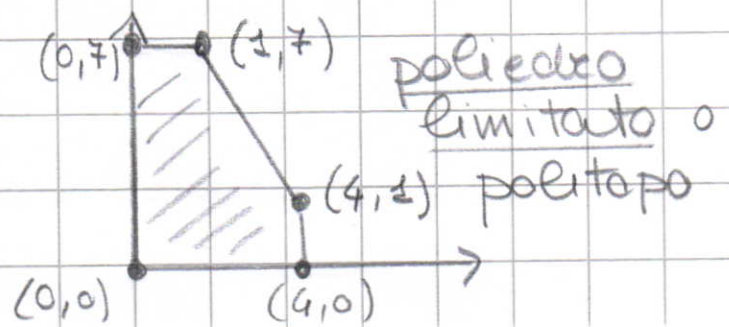 (0,7) (1,7)
poliedro
limitato o
politopo
(4,1)
(0,0) (4,0)